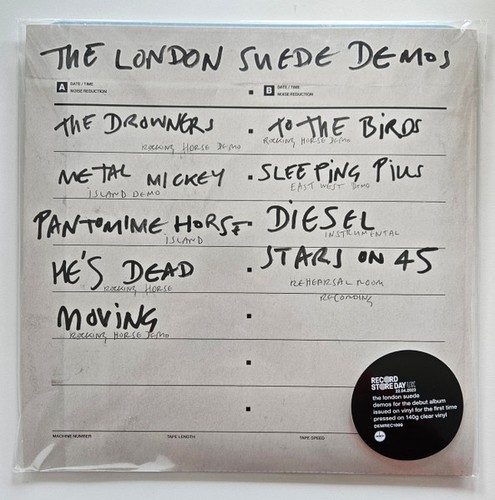 THE LONDON SUEDE DEMOS
A DATE / TIME
NOISE REDUCTION
B DATE / TIME
NOISE REDUCTION
THE DROWNERS
ROCKING HORSE DEMO
TO THE BIRDS
ROCKING HORSE DEMO
METAL MICKEY
ISLAND DEMO
SLEEPING PILLS
EAST WEST DEMO
PANTOMIME HORSE
ISLAND
DIESEL
INSTRUMENTAL
HE'S DEAD
ROCKING HORSE
STARS ON 45
REHEARSAL ROOM
RECORDING
MOVING
ROCKING HORSE DEMO
RECORD
STORE DAY UK
22.04.2023
the london suede
demos for the debut album
issued on vinyl for the first time
pressed on 140g clear vinyl
DEMREC1099
MACHINE NUMBER
TAPE LENGTH
TAPE SPEED